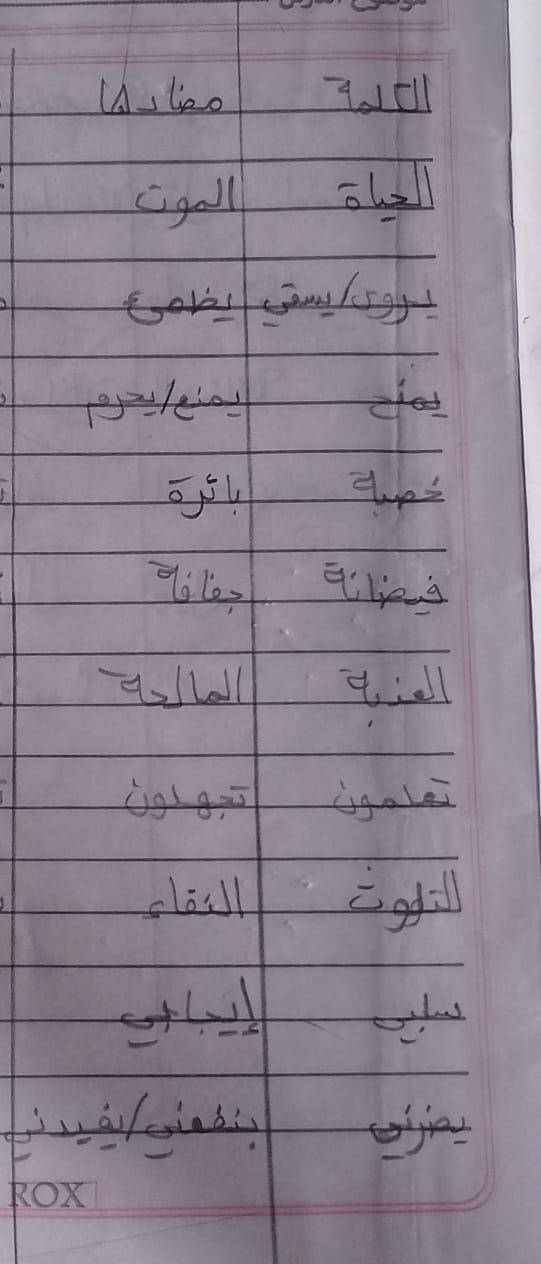 الكلمة مضادها
الحياة الموت
يروى/يسقي يظمئ
يمنح يمنع/يحرم
خصبة بائرة
فيضانة جفافة
العذبة المالحة
تعلمون تجهلون
التلوث النقاء
سلبي إيجابي
يضرني ينفعني/يفيدني
ROX